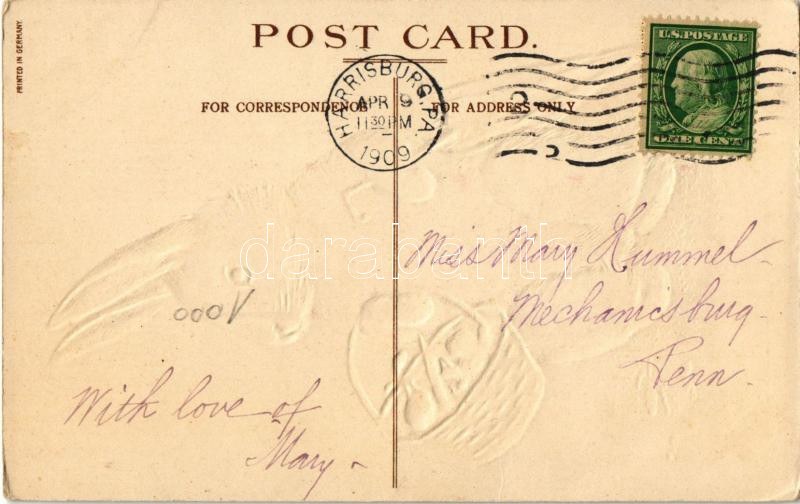 PRINTED IN GERMANY.
POST CARD.
U.S. POSTAGE
ONE CENT
FOR CORRESPONDENCE
FOR ADDRESS ONLY
HARRISBURG, PA.
APR 9
11 30 PM
1909
darabanth
Miss Mary Hummel
Mechanicsburg
Penn.
1000
With love of
Mary